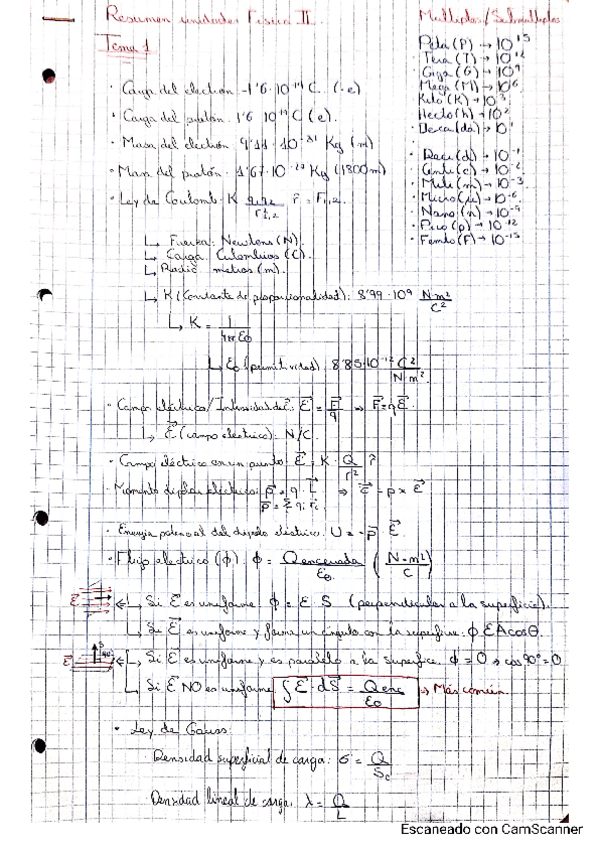 Resumen unidades Física II.
Múltiplos/Submúltiplos
Tema 1
Peta (P) → 10^15
Tera (T) → 10^12
Giga (G) → 10^9
Mega (M) → 10^6
Kilo (K) → 10^3
Hecto (h) → 10^2
Deca (da) → 10^1
Deci (d) → 10^-1
Centi (c) → 10^-2
Mili (m) → 10^-3
Micro (μ) → 10^-6
Nano (n) → 10^-9
Pico (p) → 10^-12
Femto (F) → 10^-15
· Carga del electrón -1'6·10^-19 C. (-e)
· Carga del protón: 1'6·10^-19 C (e).
· Masa del electrón 9'11·10^-31 Kg (m)
· Masa del protón: 1'67·10^-27 Kg (1800m)
· Ley de Coulomb: K q1·q2 / r²1,2 r̂ = F1,2.
↳ Fuerza: Newtons (N).
↳ Carga: Culombios (C).
↳ Radio: metros (m).
↳ K (Constante de proporcionalidad): 8'99·10^9 N·m²/C²
↳ K = 1/4πε0
↳ ε0 (permitividad) 8'85·10^-12 C²/N·m²
· Campo eléctrico/Intensidad de E: E⃗ = F⃗/q ⇒ F⃗ = qE⃗.
↳ E⃗ (campo eléctrico): N/C.
· Campo eléctrico en un punto: E⃗ = K · Q/r² r̂
· Momento dipolar eléctrico: p⃗ = q · L⃗ ⇒ τ⃗ = p × E⃗
p⃗ = Σ qi ri
· Energía potencial del dipolo eléctrico: U = -p⃗ · E⃗
· Flujo eléctrico (ϕ). ϕ = Q encerrada / ε0 (N·m²/C)
E⃗ ↳ Si E⃗ es uniforme: ϕ = E · S (perpendicular a la superficie).
↳ Si E⃗ es uniforme y forma un ángulo con la superficie: ϕ EAcosθ.
E⃗ S 90° ↳ Si E⃗ es uniforme y es paralelo a la superficie. ϕ = 0 → cos 90° = 0
↳ Si E⃗ NO es uniforme ∫E⃗ · dS⃗ = Q enc / ε0 → Más común.
· Ley de Gauss:
Densidad superficial de carga: σ = Q/Sc
Densidad lineal de carga. λ = Q/L
Escaneado con CamScanner